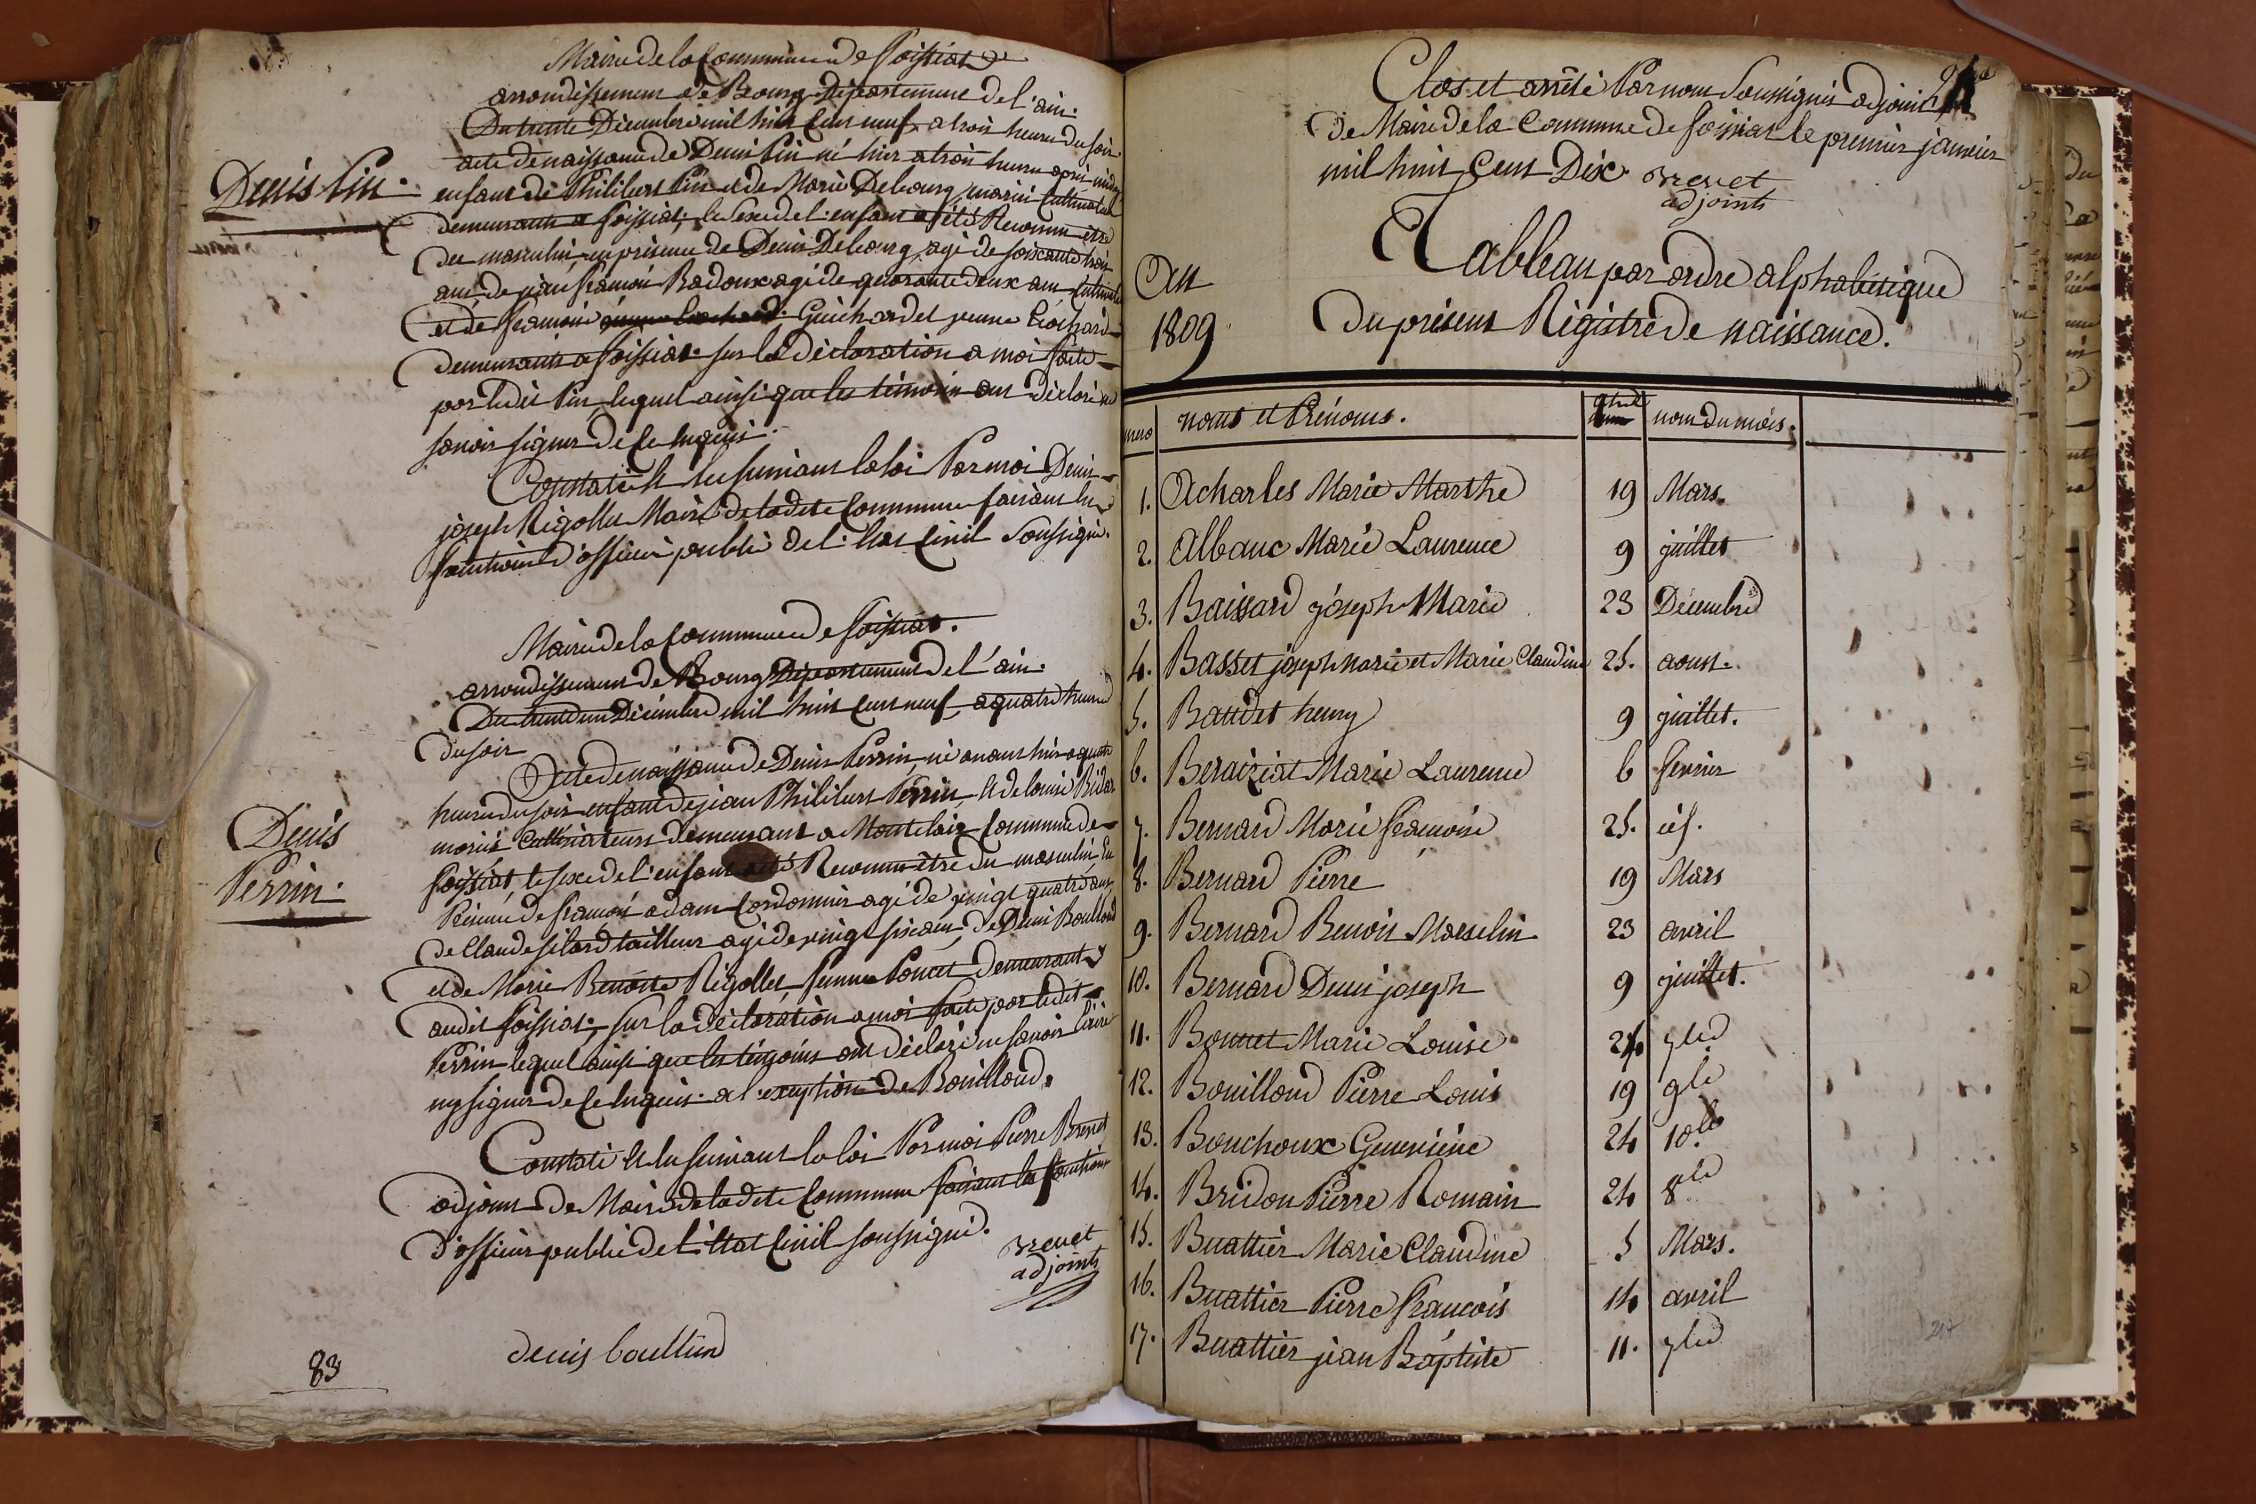 Mairie de la Commune de foissiat
arrondissement de Bourg Département de l'ain.
Du trente Décembre mil huit cens neuf a trois heures du soir
acte de naissance de Denis Pin né hier a trois heures après midy
Denis Pin.
enfant de Philibert Pin et de Marie Debourg mariés Cultivateurs
demeurants a foissiat, le sexe de l'enfant a été Reconnu etre
du masculin en présence de Denis Debourg agé de soixante trois
ans de jean françois Radoux agé de quarante deux ans Cultivateurs
et de françoise Guichardet jeune
demeurants a foissiat. sur la déclaration a moi faite
par ledit Pin lequel ainsi que les témoins ont déclaré ne
savoir signer de ce enquis.
Constaté et lu suivant la loi Par moi Denis
joseph Rigollet Maire de la dite Commune faisant les
fonctions d'officier public de l'etat Civil soussigné.
Mairie de la Commune de foissiat.
arrondissement de Bourg Département de l'ain.
Du trente un Décembre mil huit cens neuf a quatre heures
du soir
Acte de naissance de Denis Perrin né avant hier a quatre
heures du soir enfant de jean Philibert Perrin et de louise
Denis
Perrin.
mariés Cultivateurs demeurant a Montclair Commune de
foissiat, le sexe de l'enfant a été Reconnu être du masculin En
Présence de françois adam Cordonnier agé de vingt quatre ans,
de Claude tailleur agé de vingt six ans, de Denis Bouilloud
et de Marie Benoite Rigollet femme Poncet demeurants
audit foissiat. sur la déclaration a moi faite par ledit
Perrin lequel ainsi que les témoins ont déclaré ne savoir lire
ny signer de ce enquis. a l'exeption de Bouilloud.
Constaté et lu suivant la loi Par moi Pierre Brevet
adjoint de Maire de la dite Commune faisant les fonctions
d'officier public de l'Etat Civil soussigné.
Brevet
adjoint
denis boulliud
83
Clos et arrêté Par nous Soussigné adjoint
de Maire de la Commune de foissiat le premier janvier
mil huit Cens Dix.
Brevet
adjoint
An
1809
Tableau par ordre alphabétique
du présent Régistre de naissance.
noms et Prénoms. nom du mois.
1. Acharles Marie Marthe 19 Mars.
2. Albanc Marie Laurence 9 juillet
3. Baissard joseph Marie 23 Décembre
4. Basset joseph Marie et Marie Claudine 25. aoust.
5. Baudet henry 9 juillet.
6. Beraiziat Marie Laurence 6 fevrier
7. Bernard Marie françoise 25. id.
8. Bernard Pierre 19 Mars
9. Bernard Benoit Marselin 23 avril
10. Bernard Denis joseph 9 juillet.
11. Bonnet Marie Louise 24 7bre
12. Bouilloud Pierre Louis 19 9bre
13. Bouchoux Genevieve 24 10bre
14. Bridon Pierre Romain 24 8bre
15. Buattier Marie Claudine 5 Mars.
16. Buattier Pierre françois 14 avril
17. Buattier jean Baptiste 11. 7bre
217